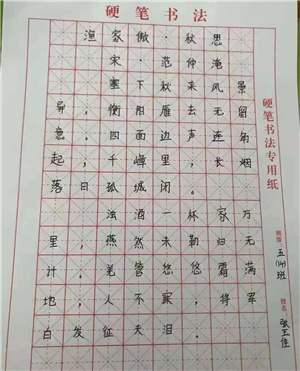 硬笔书法
渔家傲·秋思
宋·范仲淹
塞下秋来风景
异，衡阳雁去无留
意。四面边声连角
起，千嶂里，长烟
落日孤城闭。
浊酒一杯家万
里，燕然未勒归无
计。羌管悠悠霜满
地，人不寐，将军
白发征夫泪。
硬笔书法专用纸
班级 五(14)班
姓名 张玉佳